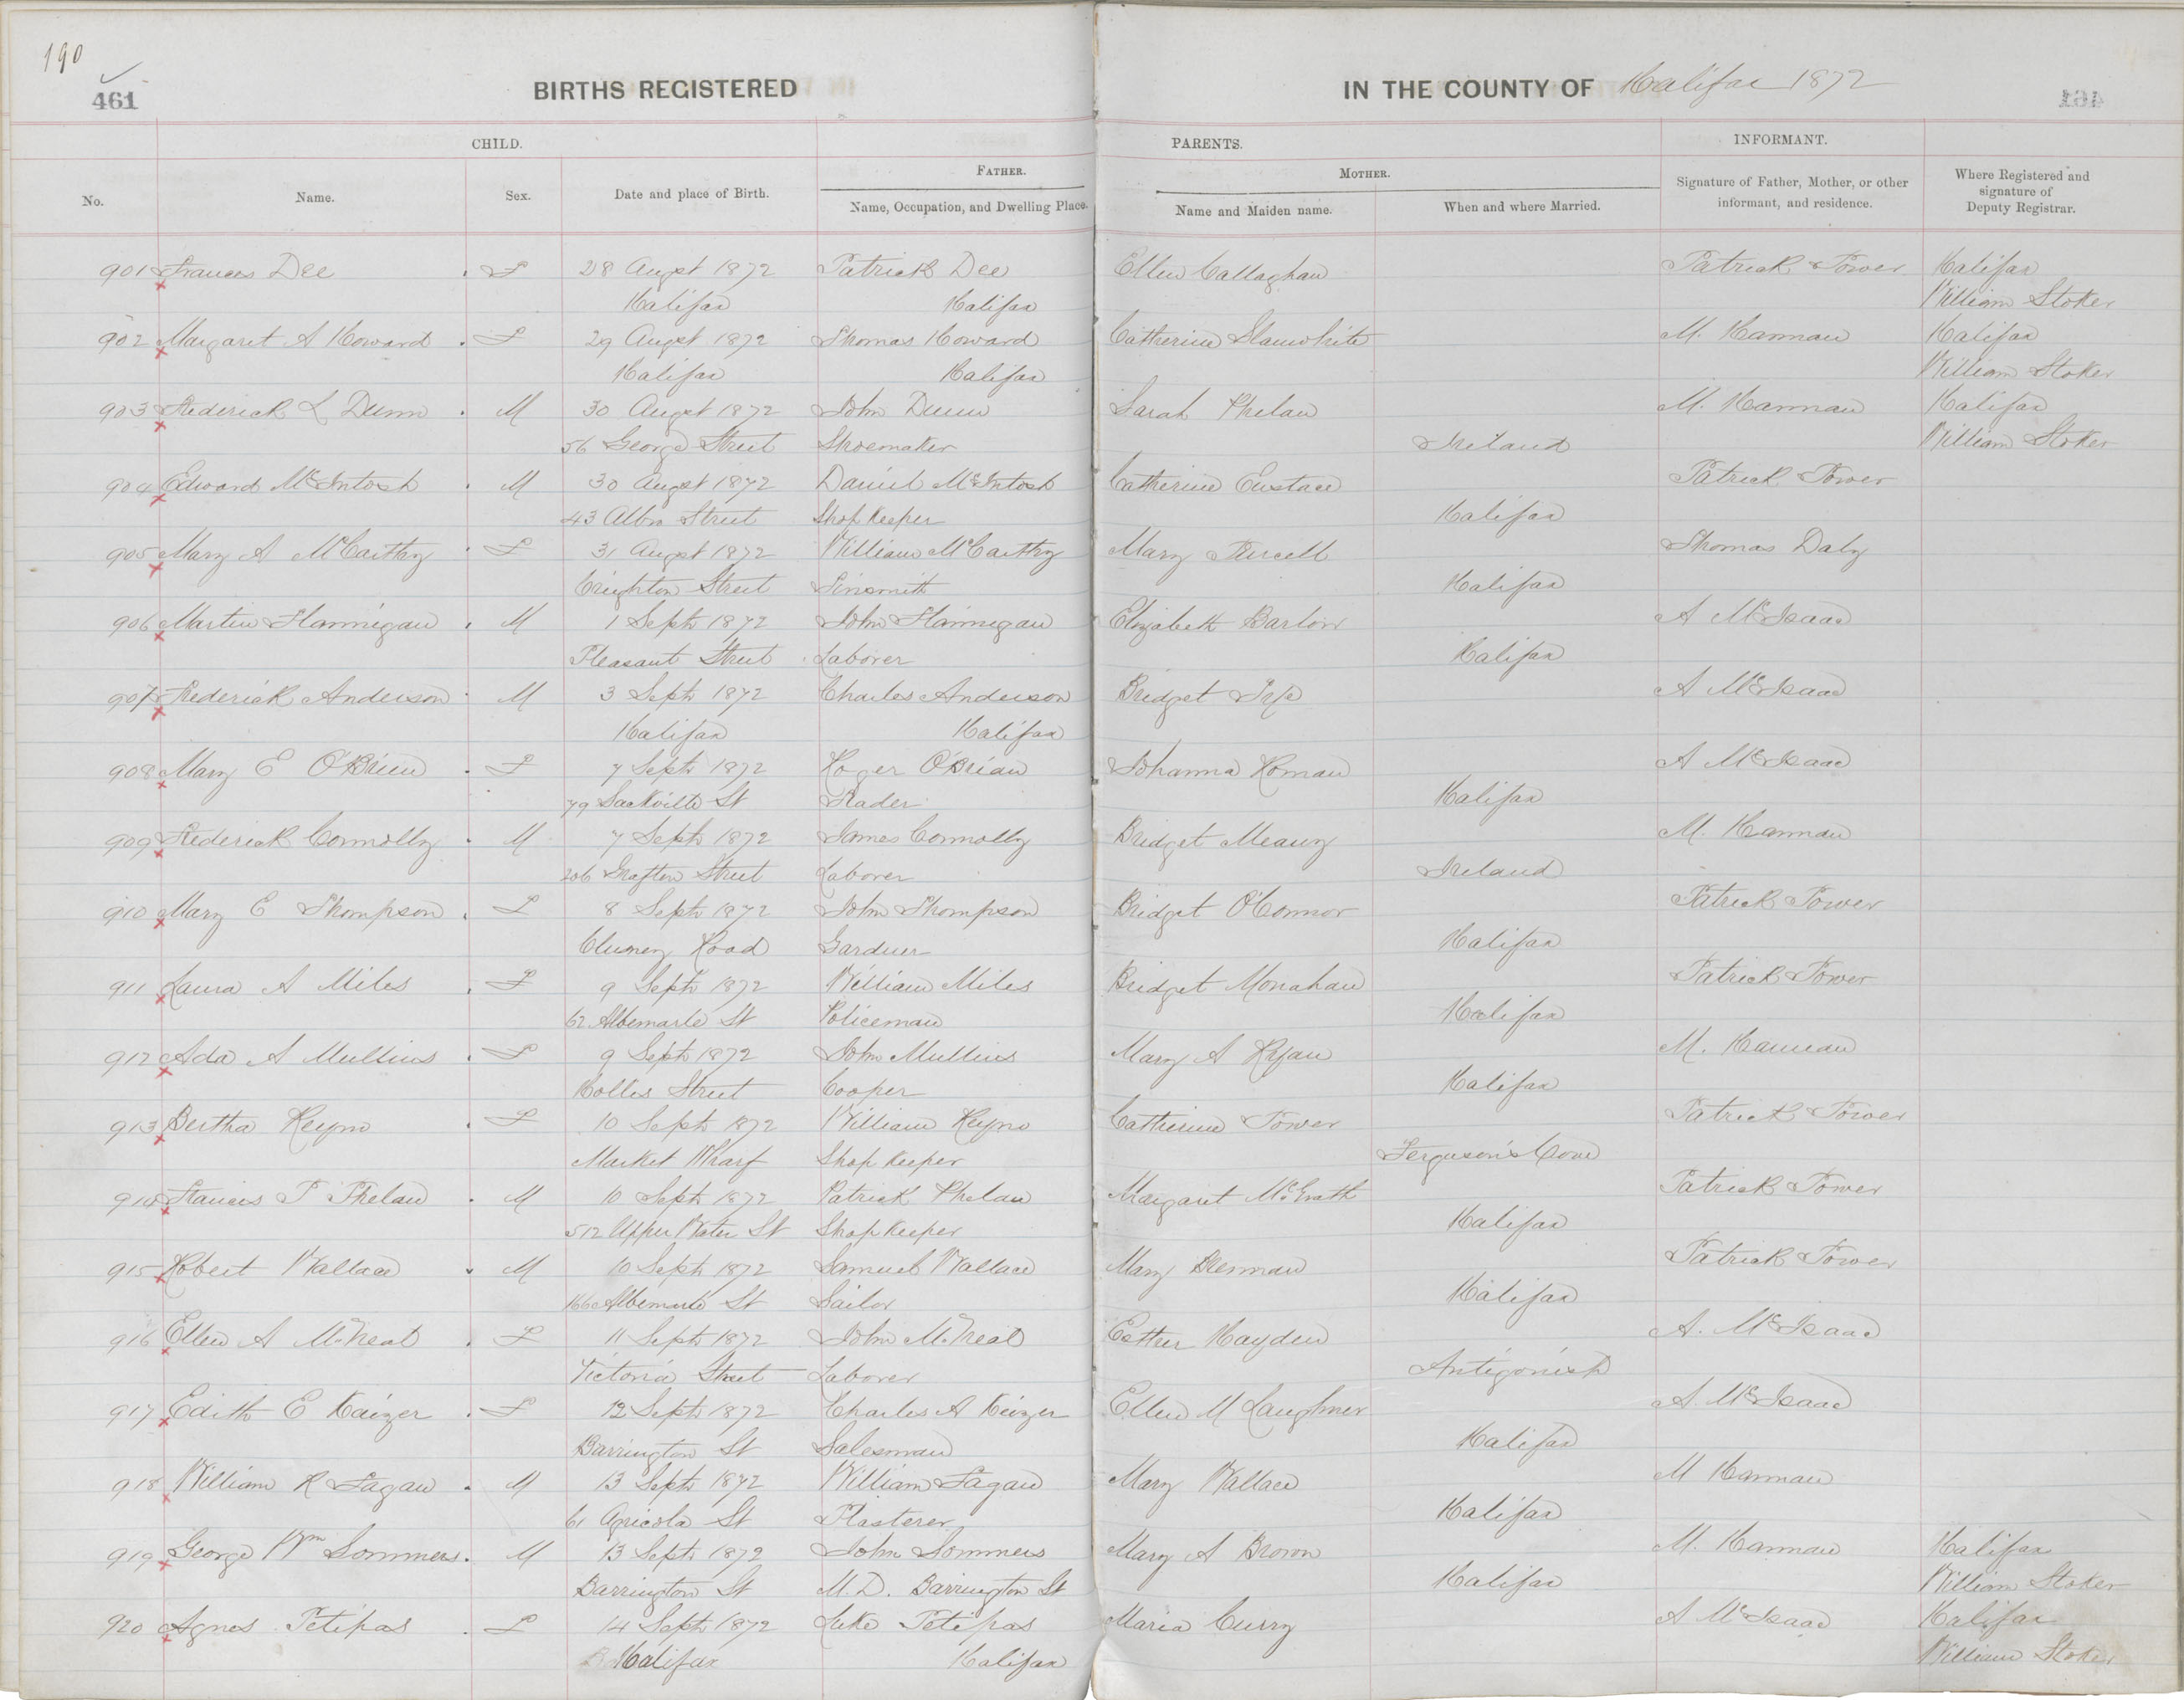 190
461
BIRTHS REGISTERED
IN THE COUNTY OF Halifax 1872
CHILD.
PARENTS.
INFORMANT.
No.
Name.
Sex.
Date and place of Birth.
FATHER.
Name, Occupation, and Dwelling Place.
MOTHER.
Name and Maiden name.
When and where Married.
Signature of Father, Mother, or other informant, and residence.
Where Registered and signature of Deputy Registrar.
901 Frances Dee F 28 Augst 1872 Patrick Dee Ellen Callaghan Patrick Power Halifax
Halifax Halifax William Stoker
902 Margaret A Howard F 29 Augst 1872 Thomas Howard Catherine Slauwhite M. Hannan Halifax
Halifax Halifax William Stoker
903 Frederick L Dunn M 30 Augst 1872 John Dunn Sarah Phelan M. Hannan Halifax
56 George Street Shoemaker Ireland William Stoker
904 Edward McIntosh M 30 Augst 1872 Daniel McIntosh Catherine Eustace Patrick Power
43 Albro Street Shop Keeper Halifax
905 Mary A McCarthy F 31 Augst 1872 William McCarthy Mary Purcell Thomas Daly
Creighton Street Tinsmith Halifax
906 Martin Flannigan M 1 Sept 1872 John Flannigan Elizabeth Barlow A McIsaac
Pleasant Street Laborer Halifax
907 Frederick Anderson M 3 Sept 1872 Charles Anderson Bridget A McIsaac
Halifax Halifax
908 Mary E O'Brien F 7 Sept 1872 Roger O'Brian Johanna Homan A McIsaac
79 Sackville St Trader Halifax
909 Frederick Connolly M 7 Sept 1872 James Connolly Bridget Meany M. Hannan
206 Grafton Street Laborer Ireland
910 Mary E Thompson F 8 Sept 1872 John Thompson Bridget O'Connor Patrick Power
Road Gardner Halifax
911 Laura A Miles F 9 Sept 1872 William Miles Bridget Monahan Patrick Power
62 Albemarle St Policeman Halifax
912 Ada A Mullins F 9 Sept 1872 John Mullins Mary A Ryan M. Hannan
Hollis Street Cooper Halifax
913 Bertha Keyno F 10 Sept 1872 William Keyno Catherine Power Patrick Power
Market Wharf Shop Keeper Ferguson's Cove
914 Francis P Phelan M 10 Sept 1872 Patrick Phelan Margaret McGrath Patrick Power
512 Upper Water St Shop Keeper Halifax
915 Robert Wallace M 10 Sept 1872 Samuel Wallace Mary Brennan Patrick Power
166 Albemarle St Sailor Halifax
916 Ellen A McNeal F 11 Sept 1872 John McNeal Esther Hayden A. McIsaac
Victoria Street Laborer Antigonish
917 Edith E Kaizer F 12 Sept 1872 Charles A Keizer Ellen M Laughner A. McIsaac
Barrington St Salesman Halifax
918 William R Fagan M 13 Sept 1872 William Fagan Mary Wallace M Hannan
61 Agricola St Plasterer Halifax
919 George Wm Sommers. M 13 Sept 1872 John Sommers Mary A Brown M. Hannan Halifax
Barrington St M.D. Barrington St Halifax William Stoker
920 Agnes Petipas F 14 Sept 1872 Luke Petipas Maria Curry A McIsaac Halifax
Halifax Halifax William Stoker